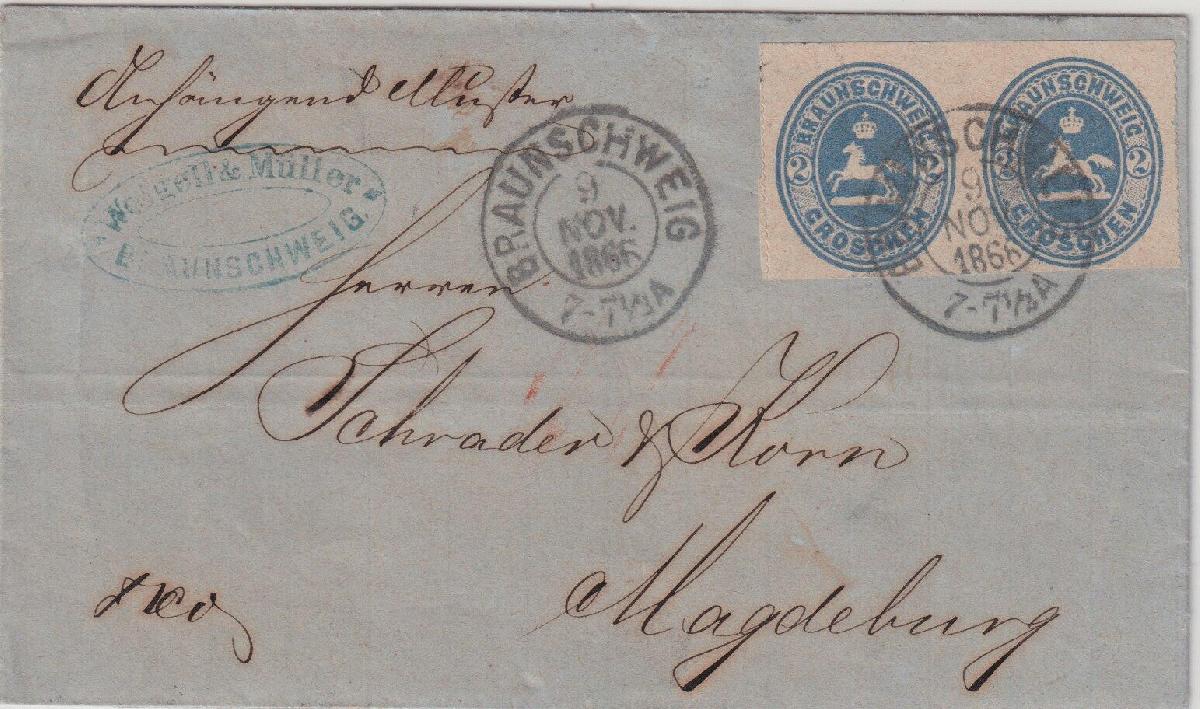 Anhängend Muster
& Müller
BRAUNSCHWEIG.
BRAUNSCHWEIG
9
NOV.
1866
7-7½A
BRAUNSCHWEIG
2 2
GROSCHEN
BRAUNSCHWEIG
2 2
GROSCHEN
BRAUNSCHWEIG
9
NOV.
1866
7-7½A
Herren
Schrader & Korn
Magdeburg